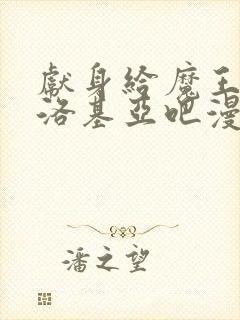 獻身給魔王
洛基亞吧漫
潘之望